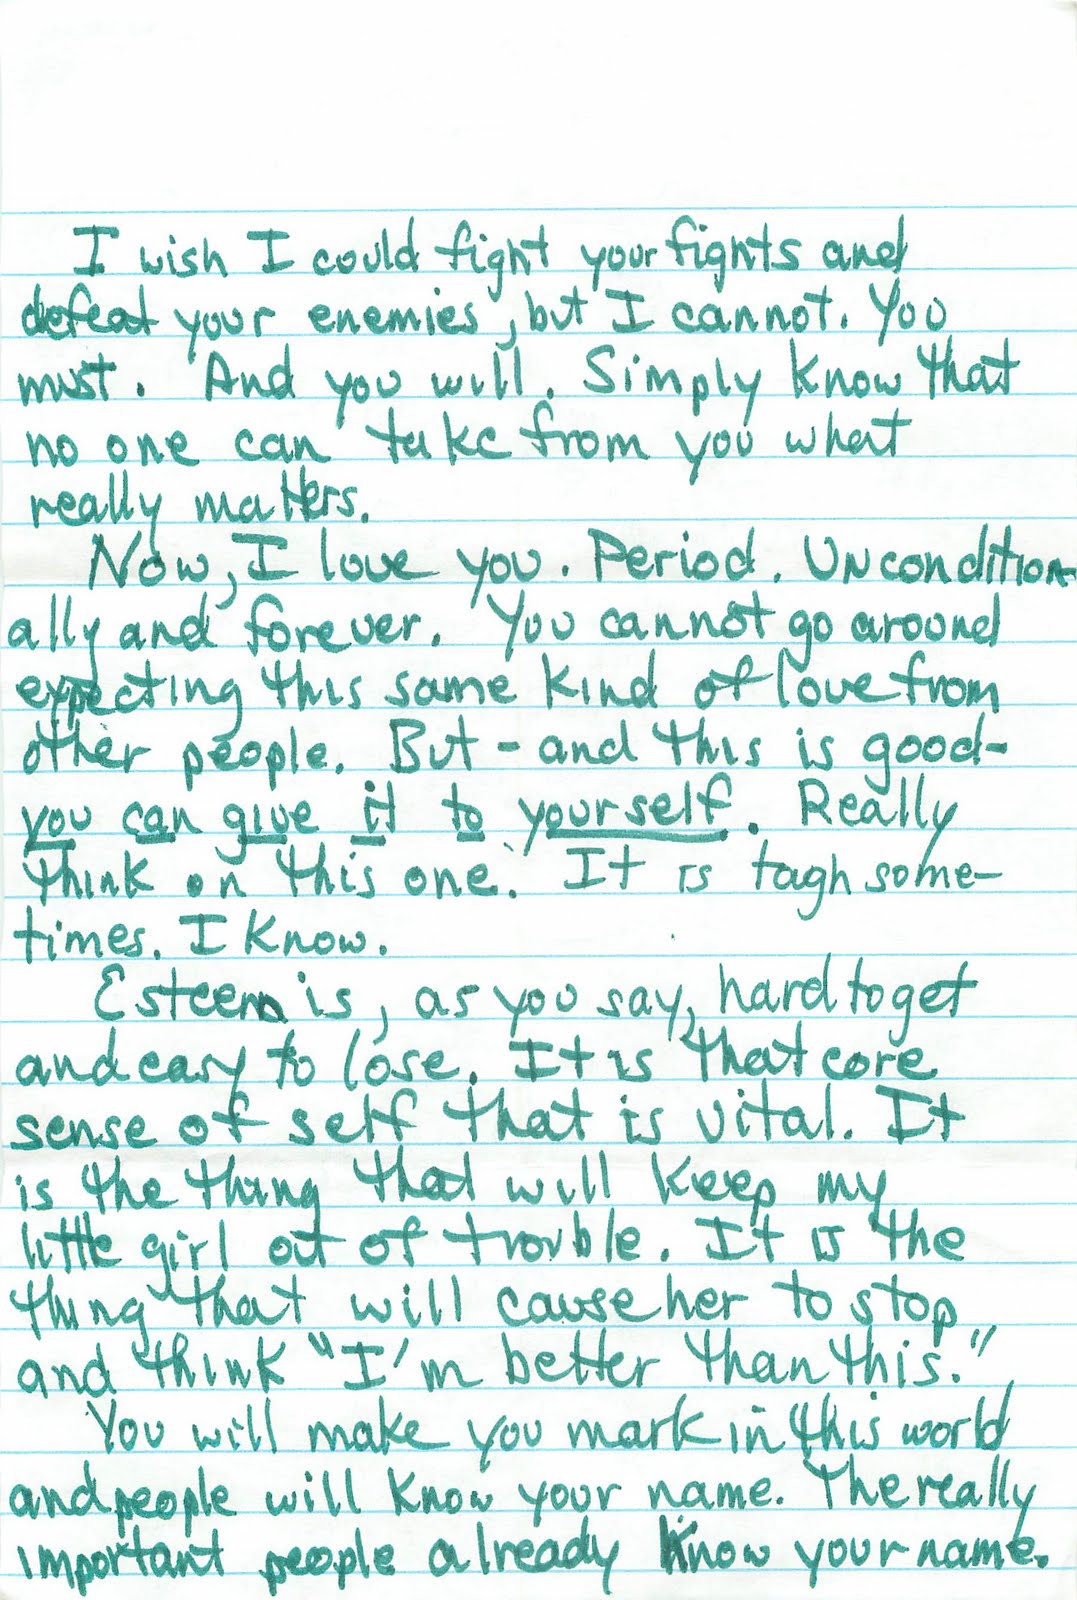 I wish I could fight your fights and
defeat your enemies, but I cannot. You
must. And you will. Simply know that
no one can take from you what
really matters.
Now, I love you. Period. Uncondition-
ally and forever. You cannot go around
expecting this same kind of love from
other people. But - and this is good -
you can give it to yourself. Really
think on this one. It is tough some-
times. I know.
Esteem is, as you say, hard to get
and easy to lose. It is that core
sense of self that is vital. It
is the thing that will keep my
little girl out of trouble. It is the
thing that will cause her to stop
and think "I'm better than this."
You will make you mark in this world
and people will know your name. The really
important people already know your name.